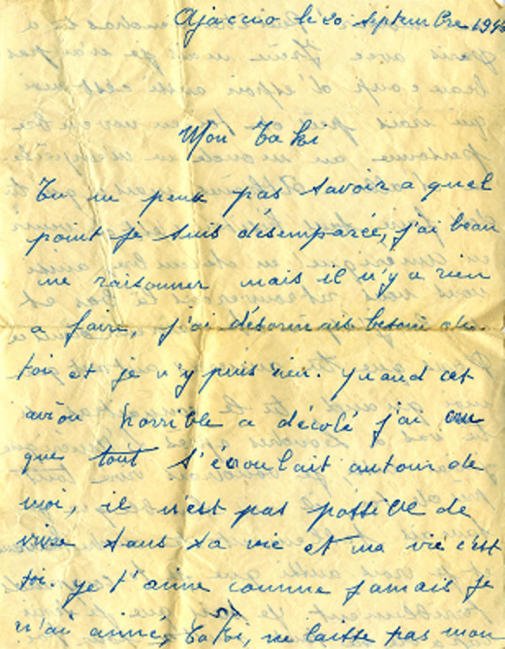 Ajaccio le 20 Septembre 194
Mon Taki
Tu ne peux pas savoir a quel
point je suis desemparée, j'ai beau
me raisonner mais il n'y a rien
a faire, j'ai désormais besoin de
toi et je n'y puis rien. Quand cet
avion horrible a décolé j'ai cru
que tout s'éroulait autour de
moi, il n'est pas possible de
vivre sans sa vie et ma vie c'est
toi. Je t'aime comme jamais je
n'ai aimé, Taki, ne laisse pas mon